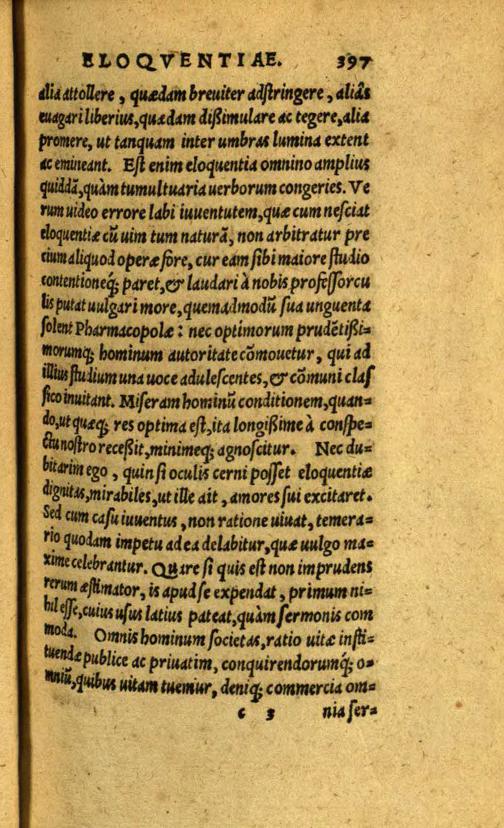 ELOQVENTIAE. 397
alia attollere, quædam breuiter adstringere, aliâs
euagari liberius, quædam dißimulare ac tegere, alia
promere, ut tanquam inter umbras lumina extent
ac emineant. Est enim eloquentia omnino amplius
quiddã, quàm tumultuaria uerborum congeries. Ve
rum uideo errore labi iuuentutem, quæ cum nesciat
eloquentiæ cũ uim tum naturã, non arbitratur pre
cium aliquod operæ fore, cur eam sibi maiore studio
contentioneq́; paret, & laudari à nobis professorcu
lis putat uulgari more, quemadmodũ sua unguenta
solent Pharmacopolæ: nec optimorum prudẽtißi=
morumq́; hominum autoritate cõmouetur, qui ad
illius studium una uoce adulescentes, & cõmuni claſ
sico inuitant. Miseram hominũ conditionem, quan=
do, ut quæq; res optima est, ita longißime à conspe=
ctu nostro receßit, minimeq́; agnoscitur. Nec du=
bitarim ego, quin si oculis cerni posset eloquentiæ
dignitas, mirabiles, ut ille ait, amores sui excitaret.
Sed cum casu iuuentus, non ratione uiuat, temera=
rio quodam impetu ad ea delabitur, quæ uulgo ma=
xime celebrantur. Quare si quis est non imprudens
rerum æstimator, is apud se expendat, primum ni=
hil esse, cuius usus latius pateat, quàm sermonis com
moda. Omnis hominum societas, ratio uitæ insti=
tuendæ publice ac priuatim, conquirendorumq́; o=
mniũ, quibus uitam tuemur, deniq; commercia om=
c 3 nia ser=